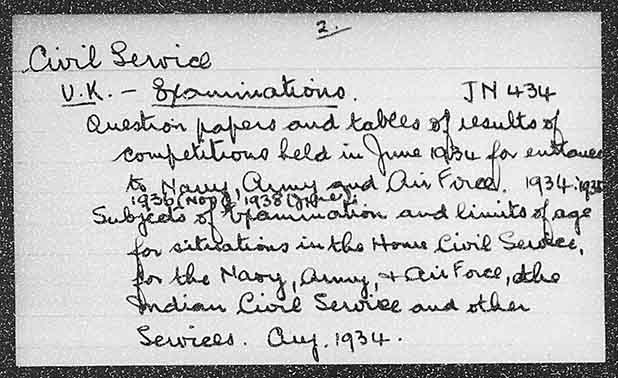 2.
Civil Service
U.K. - Examinations. JN 434
Question papers and tables of results of
competitions held in June 1934 for entrance
to Navy, Army and Air Force. 1934. 1935
1936 (Nov), 1938 (June);
Subjects of Examination and limits of age
for situations in the Home Civil Service,
for the Navy, Army, + Air Force, the
Indian Civil Service and other
Services. Aug. 1934.